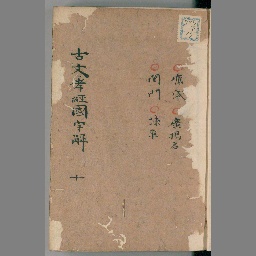 應感 廣揚名
閨門 諫爭
古文孝經國字解 十